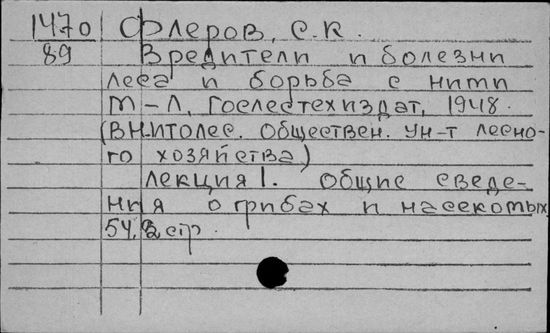 1470 Флеров, С.К.
89 Вредители и болезни
леса и борьба с ними
М-Л, Гослестехиздат, 1948.
(ВНИТОлес. Обществен. ун-т лесно-
го хозяйства)
Лекция 1. Общие сведе-
ния о грибах и насекомых
54, 2 стр.